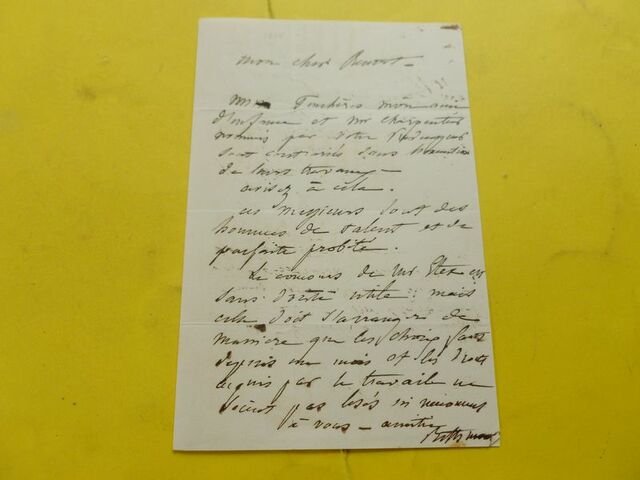 mon cher
mon ami
d'enfance et Mr Charpentier
nommés par votre
sont dans
de leurs travaux
avisez à cela.
ces messieurs sont des
hommes de talent et de
parfaite probité.
Le concours de Mr Etex est
sans doute utile : mais
cela doit s'arranger de
manière que les choix faits
depuis un mois et les droits
acquis par le travail ne
soient pas lésés ni
à vous – amitié